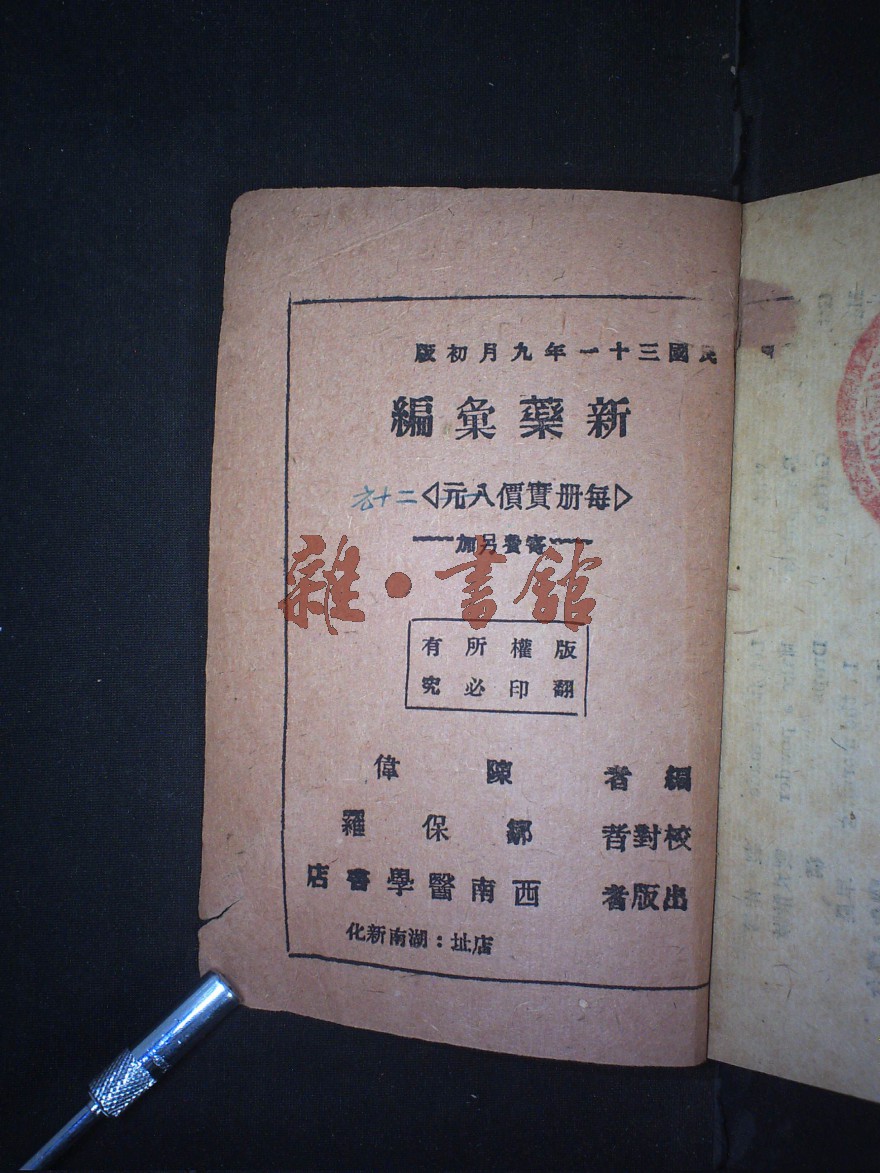 民國三十一年九月初版
新藥彙編
每册實價八元 二十元
寄費另加
雜·書館
版權所有
翻印必究
編者 陳偉
校對者 鄒保羅
出版者 西南醫學書店
店址：湖南新化